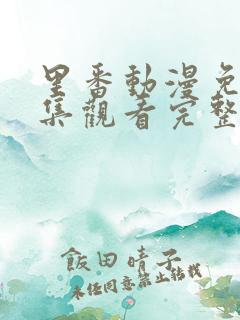 里番動漫免
集觀看完整
飯田晴子
未經同意禁止轉載